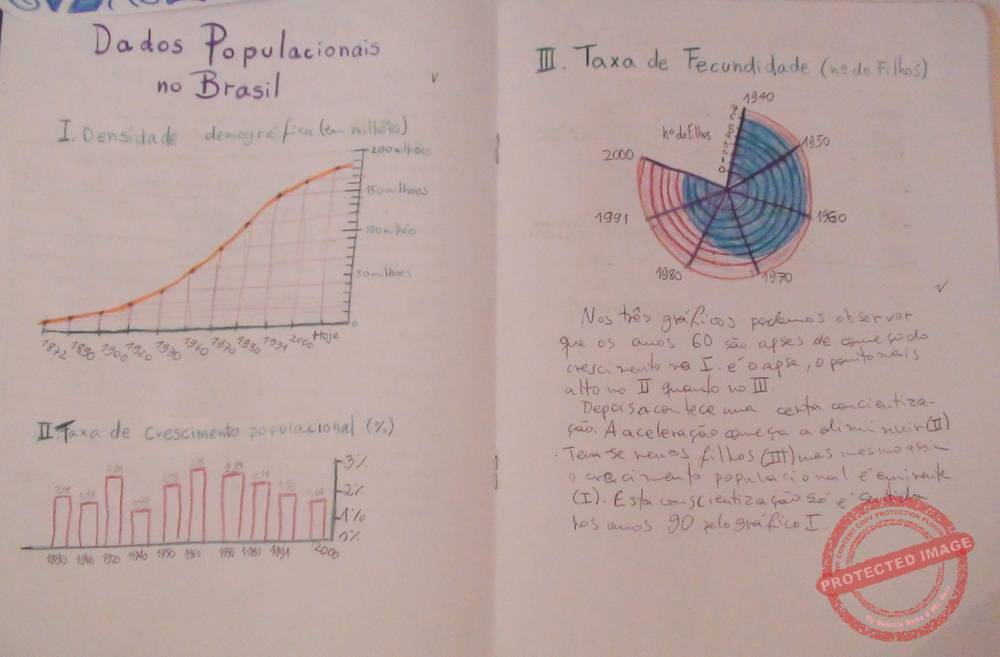 Dados Populacionais
no Brasil
I. Densidade demográfica (em milhões)
200 milhões
150 milhões
100 milhões
50 milhões
0
1872 1890 1900 1920 1930 1960 1970 1980 1991 2000 Hoje
II. Taxa de Crescimento populacional (%)
3%
2%
1%
0%
1890 1920 1940 1950 1960 1980 1991 2000
III. Taxa de Fecundidade (nº de Filhos)
nº de filhos
1940
1950
1960
1970
1980
1991
2000
Nos três gráficos podemos observar
que os anos 60 são apses de começo do
crescimento na I. é o apse, o ponto mais
alto no II quanto no III.
Depois acontece uma certa concientiza-
ção. A aceleração começa a diminuir (II)
Tem-se menos filhos (III) mas mesmo assim
o crescimento populacional é eminente
(I). Esta conscientização só é
nos anos 90 pelo gráfico I.
PROTECTED IMAGE